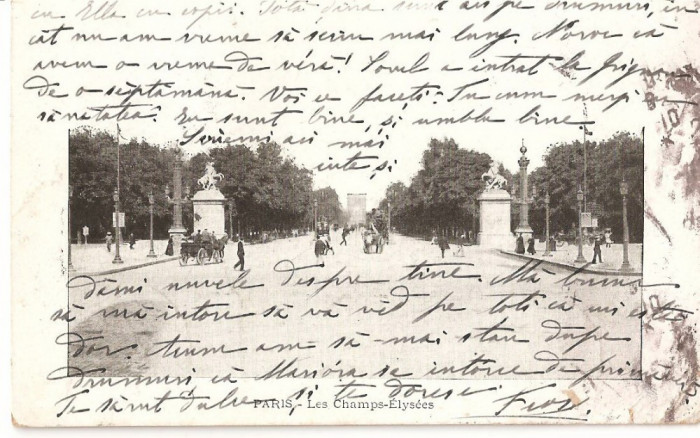 cu Ella cu copii. Totă ḑiua sunt aci pe drumuri, în
cât nu am vreme să scriu mai lung. Noroc că
avem o vreme de véră! Ionel a intrat la
de o săptămână. Voi ce faceti? Tu cum mergi cu
sănătatea? Eu sunt bine, şi umblu bine
Scriemi aci mai
iute şi
dămi nuvele despre tine. Mă bucur
să mă intorc să vă vĕd pe toti că mi este
dor. Acum am să-mai stau dupe
drumuri că Marióra se intorce de
Te sărut dulce şi te doresc
PARIS - Les Champs-Élysées